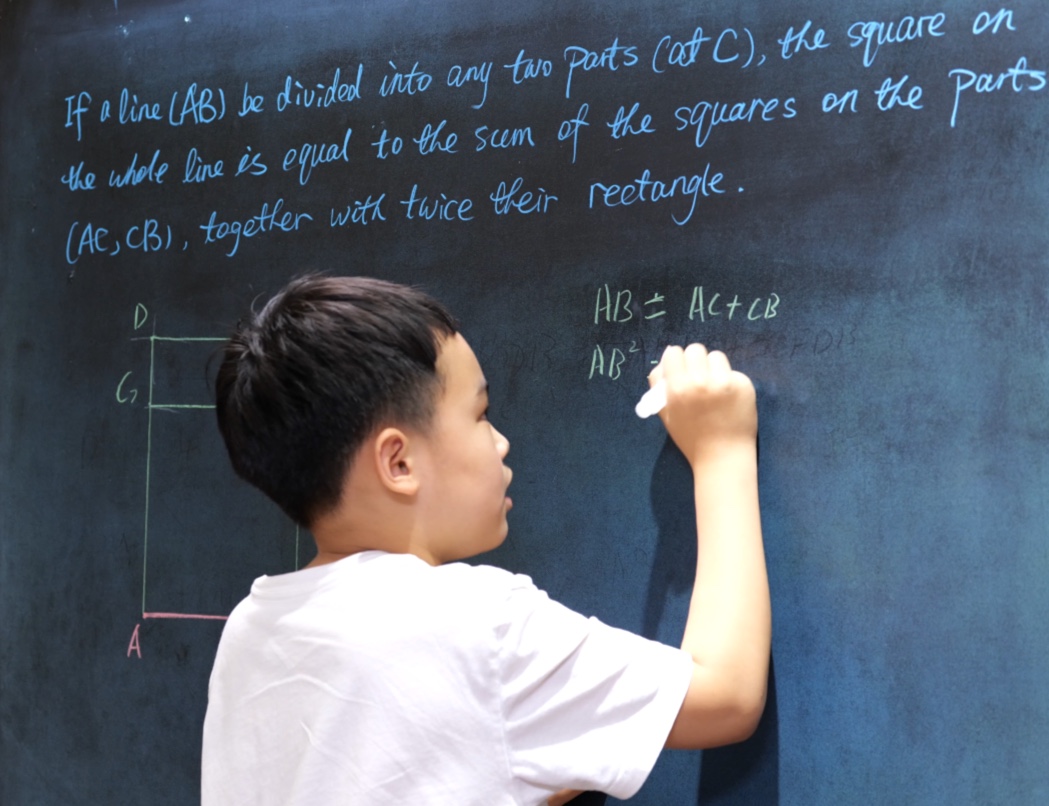 If a line (AB) be divided into any two parts (at C), the square on
the whole line is equal to the sum of the squares on the parts
(AC, CB), together with twice their rectangle.
D
G
A
AB = AC + CB
AB²